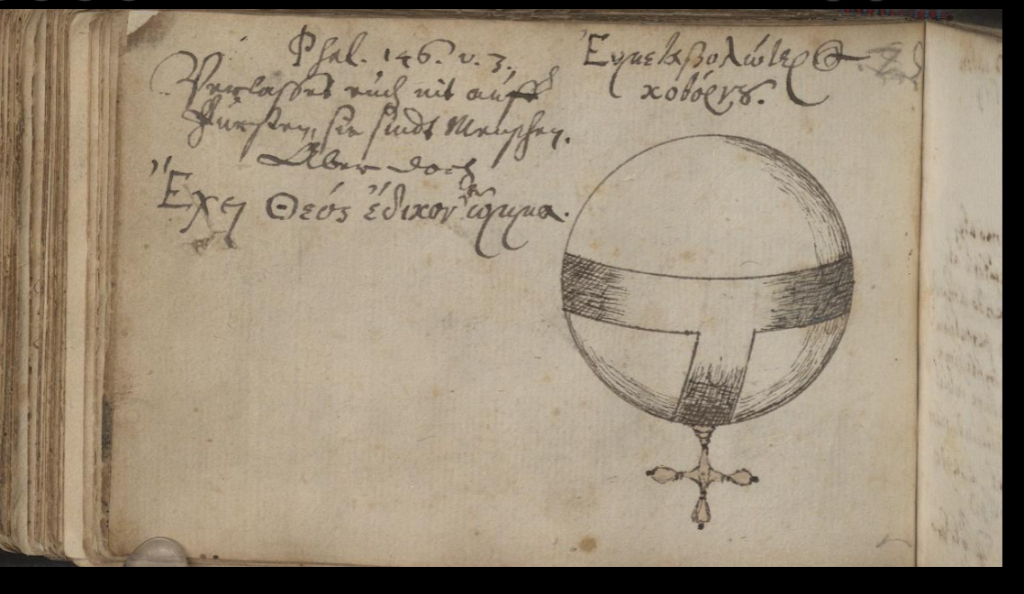 Psal. 146. v. 3.
Verlasset euch nit auff
Fürsten, sie sindt Menschen.
Aber doch
Ἔχει Θεός ἔδικον ὄμμα.
Εὐμεταβολώτερος
κοθόρνου.